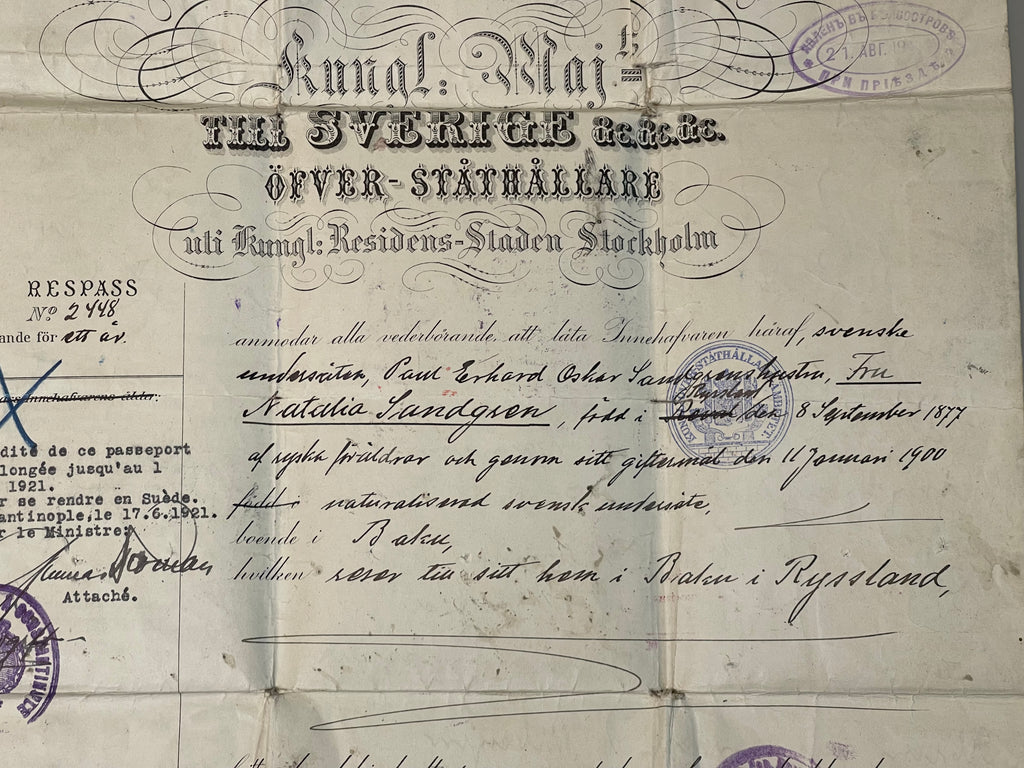 Kungl: Maj:ts
TILL SVERIGE &c.&c.&c.
ÖFVER-STÅTHÅLLARE
uti Kungl: Residens-Staden Stockholm
21 АВГ. 19
ПРИ ПРІѢЗДѢ
RESPASS
No 2448
ande för ett år.
Innehafvarens ålder:
dité de ce passeport
longée jusqu'au 1
1921.
r se rendre en Suède.
antinople,le 17.6.1921.
r le Ministre:
Attaché.
anmodar alla vederbörande att låta Innehafvaren häraf, svenske
undersåten, Paul Erhard Oskar Sandgrens hustru, Fru
Natalia Sandgren, född i Ryssland den 8 September 1877
af ryska föräldrar och genom sitt giftermål den 11 Januari 1900
född i naturaliserad svensk undersåte,
boende i Baku,
hvilken reser till sitt hem i Baku i Ryssland,